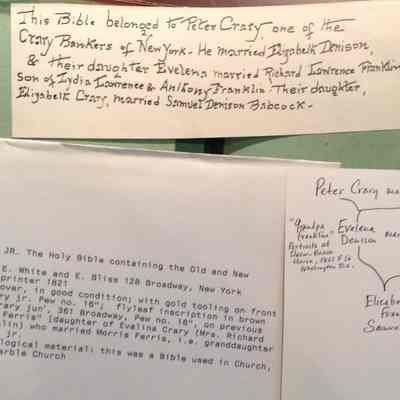 This Bible belonged to Peter Crary, one of the
Crary Bankers of New York - He married Elizabeth Denison,
& their daughter Evelena married Richard Lawrence Franklin
son of Lydia Lawrence & Anthony Franklin. Their daughter,
Elizabeth Crary, married Samuel Denison Babcock -
JR. The Holy Bible containing the Old and New
E. White and E. Bliss 128 Broadway, New York
printer 1821
over, in good condition; with gold tooling on front
ry jr. Pew no. 16"; flyleaf inscription in brown
rary jun', 361 Broadway, Pew no. 16", on previous
Ferris" [daughter of Evalina Crary (Mrs. Richard
lin) who married Morris Ferris, i.e. granddaughter
jr.
logical material; this was a Bible used in Church,
arble Church
Peter Crary ma
"Grandpa
Franklin"
Portraits at
House,
Washington
Evelena
Denison
mar
Elizabe
Fran